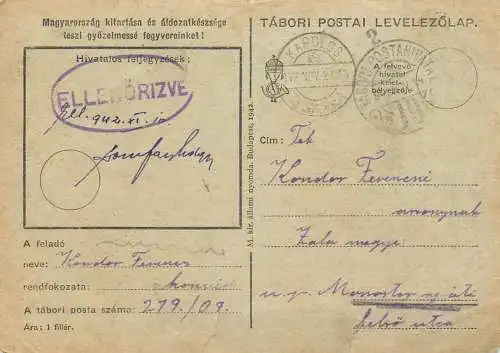 Magyarország kitartása és áldozatkészsége
teszi győzelmessé fegyvereinket!
Hivatalos feljegyzések:
ELLENŐRIZVE
Ell. 942. XI. 10
A feladó
neve: Kondor Ferenc
rendfokozata: honvéd
A tábori posta száma: 219/09.
Ára: 1 fillér.
M. kir. állami nyomda. Budapest, 1942.
TÁBORI POSTAI LEVELEZŐLAP.
KAPOLCS
A felvevő
hivatal
kelet-
bélyegzője
Cím: Tek
Kondor Ferencné
asszonynak
Zala megye
u. p. Monostor
felső utca